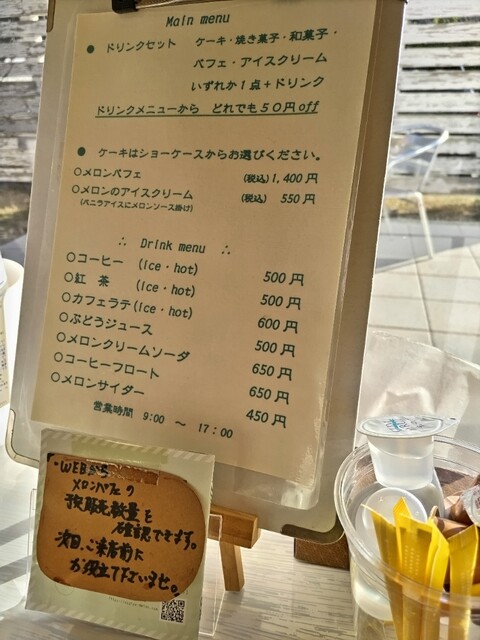 Main menu
● ドリンクセット ケーキ・焼き菓子・和菓子・
パフェ・アイスクリーム
いずれか1点+ドリンク
ドリンクメニューから どれでも50円off
● ケーキはショーケースからお選びください。
○メロンパフェ (税込) 1,400円
○メロンのアイスクリーム (税込) 550円
(バニラアイスにメロンソース掛け)
∴ Drink menu ∴
○コーヒー (ice・hot) 500円
○紅 茶 (ice・hot) 500円
○カフェラテ(ice・hot) 600円
○ぶどうジュース 500円
○メロンクリームソーダ 650円
○コーヒーフロート 650円
○メロンサイダー 450円
営業時間 9:00 ~ 17:00
・WEBから
メロンパフェの
予販売数量を
確認できます。
次回、ご来店前に
お役立て下さいませ。